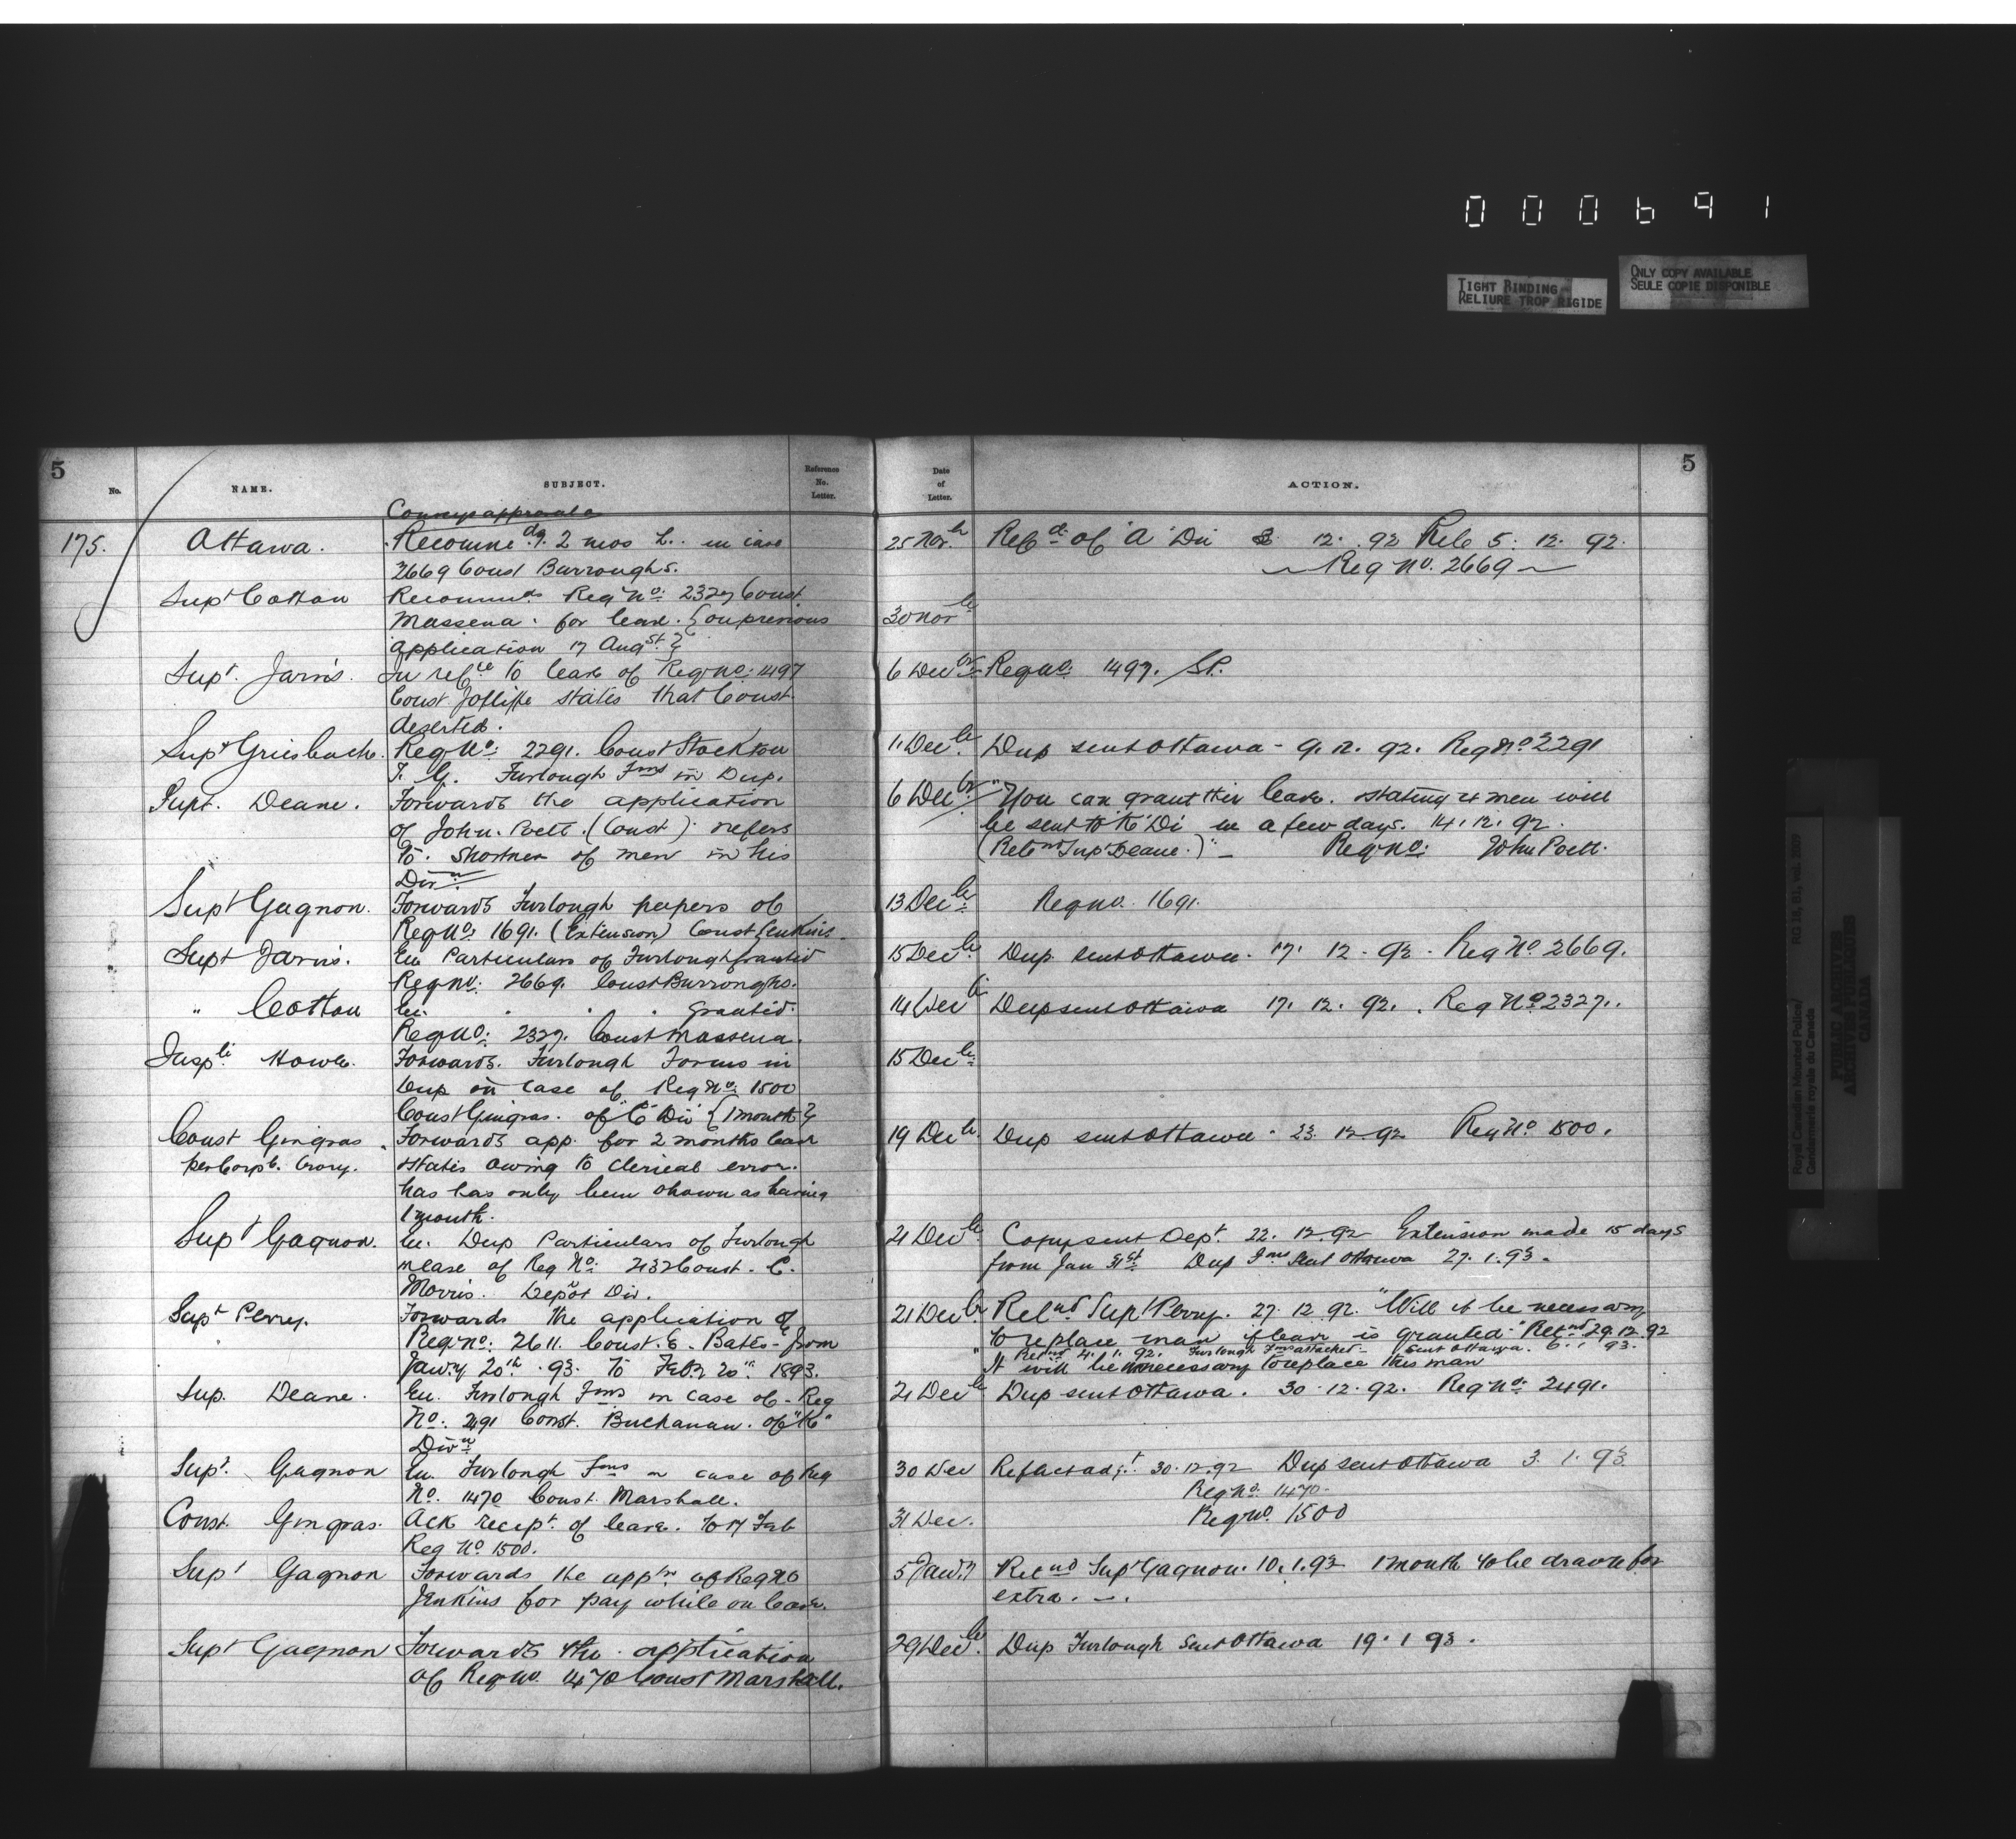 000691
TIGHT BINDING
RELIURE TROP RIGIDE
ONLY COPY AVAILABLE
SEULE COPIE DISPONIBLE
5
No.
NAME.
SUBJECT.
Reference
No.
Letter.
Date
of
Letter.
ACTION.
5
Conveys approval
175. Ottawa. Recommedg. 2 mos L. in case 25 Novbr Refd of "A" Div 3 12. 92 Retd 5. 12. 92.
2669 Const Burroughs. Reg No. 2669
Supt Cotton Recommds Reg No: 2327 Const
Massena. for leave. {on previous 30 Novbr
application 17 Augst}
Supt. Jarvis. In refce to leave of Reg No: 1497 6 Decbr Reg No: 1497.
Const Jolliffe states that Const
deserted.
Supt Griesbach. Reg No: 2291. Const Stockton 1. Decbr. Dup sent Ottawa - 9. 12. 92. Reg No 2291
T. G. Furlough Fms in Dup.
Supt. Deane. Forwards the application 6 Decbr "You can grant this leave. stating 4 men will
of John. Poett. (Const) refers be sent to "K" Div in a few days. 14. 12. 92.
to. shortness of men in his (Retnd Supt Deane.)" Reg No: John Poett.
Divn
Supt Gagnon. Forwards Furlough papers of 13 Decbr Reg No. 1691.
Reg No: 1691. (Extension) Const Jenkins.
Supt Jarvis. En Particulars of Furlough granted 15 Decbr. Dup sent Ottawa. 17. 12. 92. Reg No 2669.
Reg No: 2669. Const Burroughs.
" Cotton En. " " " granted. 14 Decbr Dup sent Ottawa 17. 12. 92. Reg No 2327.
Reg No: 2327. Const Massena.
Inspr Howe. Forwards. Furlough Forms in 15 Decbr
Dup in case of Reg No: 1500
Const Gingras. of "C" Div {1 month}
Const Gingras Forwards app. for 2 months leave 19 Decbr. Dup sent Ottawa. 23. 12. 92 Reg No 1500.
per Corpl. Crory. states owing to clerical error.
has has only been shown as having
1 month.
Supt Gagnon. En. Dup Particulars of Furlough 21 Decbr Copy sent Dept. 22. 12. 92 Extension made 15 days
in case of Reg No: 2432 Const. C. from Jan 31st Dup Fms sent Ottawa 27. 1. 93.
Morris. Depot Div.
Supt Perry. Forwards the application of 21 Decbr. Retnd Supt Perry. 27. 12. 92. "Will it be necessary
Reg No: 2611. Const. E. Bates - from to replace man if leave is granted." Retnd 29. 12. 92
Retnd 4. 1. 92. Furlough Fms attached - Sent Ottawa. 6. 1. 93.
Jan'y 20th. 93. to Feb'y 20th. 1893. "It will be unnecessary to replace this man
Sup. Deane. En. Furlough Fms in case of - Reg 21 Decbr Dup sent Ottawa. 30. 12. 92. Reg No: 2491.
No: 2491 Const. Buchanan. of "K"
Divn
Supt. Gagnon En. Furlough Fms in case of Reg 30 Dec 30. 12. 92 Dup sent Ottawa 3. 1. 93
No. 1470 Const. Marshall. Reg No: 1470.
Const. Gingras. Ack receipt. of leave. to 17 Feb 31 Dec. Reg No. 1500
Reg No 1500.
Supt Gagnon Forwards the appln. of Reg No 5 Jan'y Retnd Supt Gagnon. 10. 1. 93 1 month to be drawn for
Jenkins for pay while on leave. extra.
Supt Gagnon Forwards the application 29 Decbr. Dup Furlough sent Ottawa 19. 1 93.
of Reg No. 1470 Const Marshall.
Royal Canadian Mounted Police/
Gendarmerie royale du Canada
PUBLIC ARCHIVES
ARCHIVES PUBLIQUES
CANADA